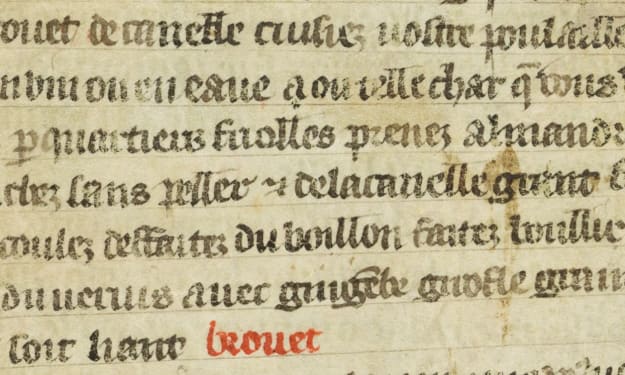 rouet de canelle cuisiez vostre poulaille
en vin ou en eaue a ou telle char q̄ vous
p quartiers friolles prenez almand
chez sans peller ⁊ de la canelle grant
coulez deffaites du boillon faites boullir
du verius avec gingēbre girofle grain
soit liant brouet